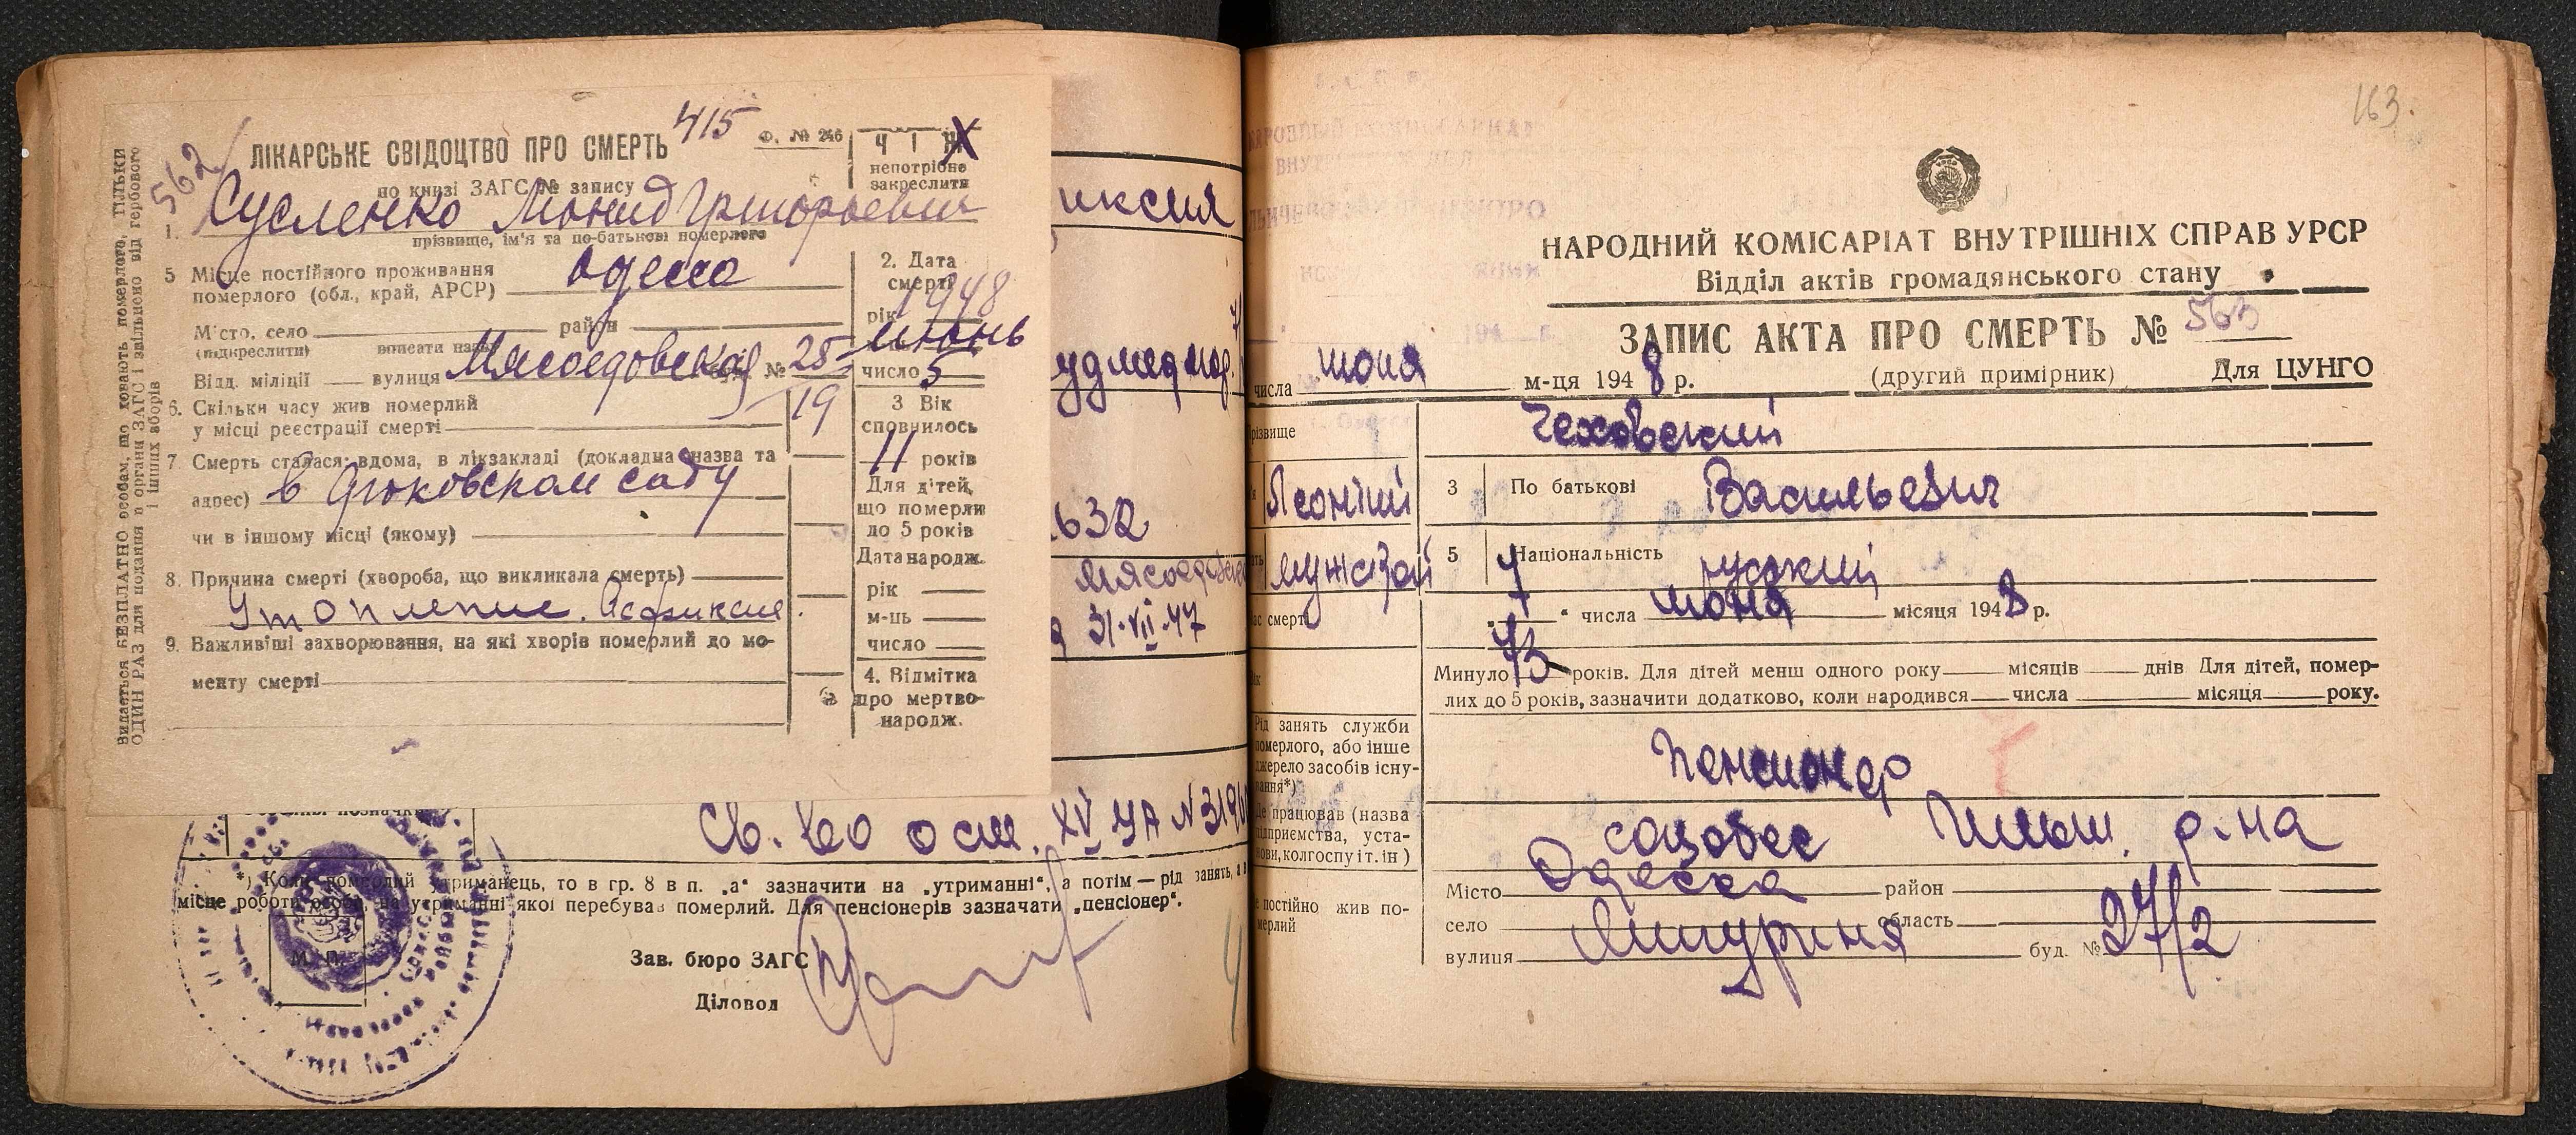 562
415
ЛІКАРСЬКЕ СВІДОЦТВО ПРО СМЕРТЬ
Ф. № 246
по книзі ЗАГС № запису
непотрібне
закреслити
1. Сусленко Монид Григорьевич
прізвище, ім'я та по-батькові померлого
5 Місце постійного проживання
померлого (обл., край, АРСР) Одесса
Місто, село район
(підкреслити) вписати назву
Відд. міліції вулиця Мясоедовская № 25
19
6. Скільки часу жив померлий
у місці реєстрації смерті
7. Смерть сталася: вдома, в лікзакладі (докладна назва та
адрес) в Дюковском саду
чи в іншому місці (якому)
8. Причина смерті (хвороба, що викликала смерть)
Утопление. Асфиксия.
9. Важливіші захворювання, на які хворів померлий до мо-
менту смерті
2. Дата
смерті
рік 1948
июнь
число 5
3 Вік
сповнилось
11 років
Для дітей,
що померли
до 5 років
Дата народж.
рік
м-ць
число
4. Відмітка
про мертво-
народж.
Видається БЕЗПЛАТНО особам, що ховають померлого, тільки
ОДИН РАЗ для подання в органи ЗАГС і звільнено від гербового
і інших зборів
иксия
632
31.VII.47
Св. во о см. XV УА N
*) Коли померлий утриманець, то в гр. 8 в п. „а“ зазначити на „утриманні“, а потім — рід занять,
місце роботи особи, на утриманні якої перебував померлий. Для пенсіонерів зазначати „пенсіонер“.
М. П.
Зав. бюро ЗАГС
Діловод
163.
НАРОДНИЙ КОМІСАРІАТ ВНУТРІШНІХ СПРАВ УРСР
Відділ актів громадянського стану
ЗАПИС АКТА ПРО СМЕРТЬ № 563
числа июня м-ця 1948 р. (другий примірник) Для ЦУНГО
різвище Чеховский
Леонтий 3 По батькові Васильевич
мужской 5 Національність русский
ас смерті 7 " числа июня місяця 1948 р.
Минуло 73 років. Для дітей менш одного року місяців днів Для дітей, помер-
лих до 5 років, зазначити додатково, коли народився числа місяця року.
Рід занять служби
померлого, або інше
джерело засобів існу-
вання*)
Пенсионер
Де працював (назва
підприємства, уста-
нови, колгоспу і т. ін)
собес Ильич. р-на
постійно жив по-
мерлий
Місто Одесса район
село область
вулиця буд. № 27/2